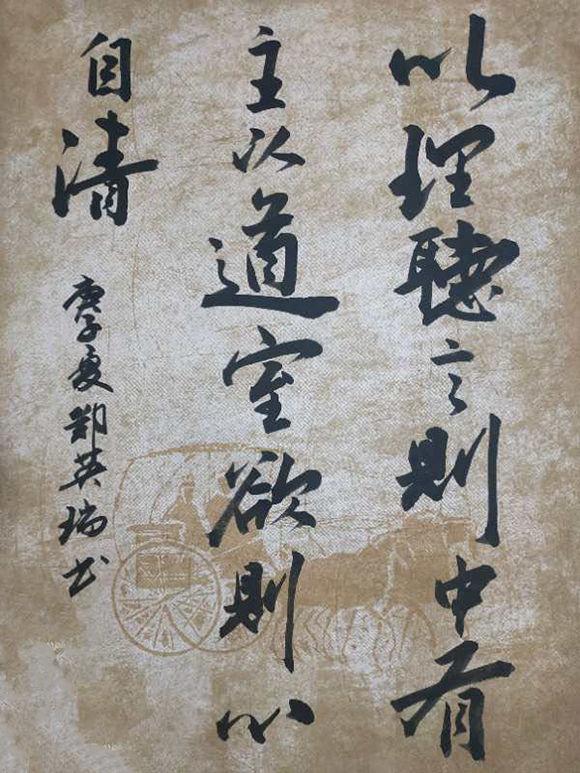 以理聽言則中有
主以道窒欲則心
自清
庚子夏鄭英瑞书